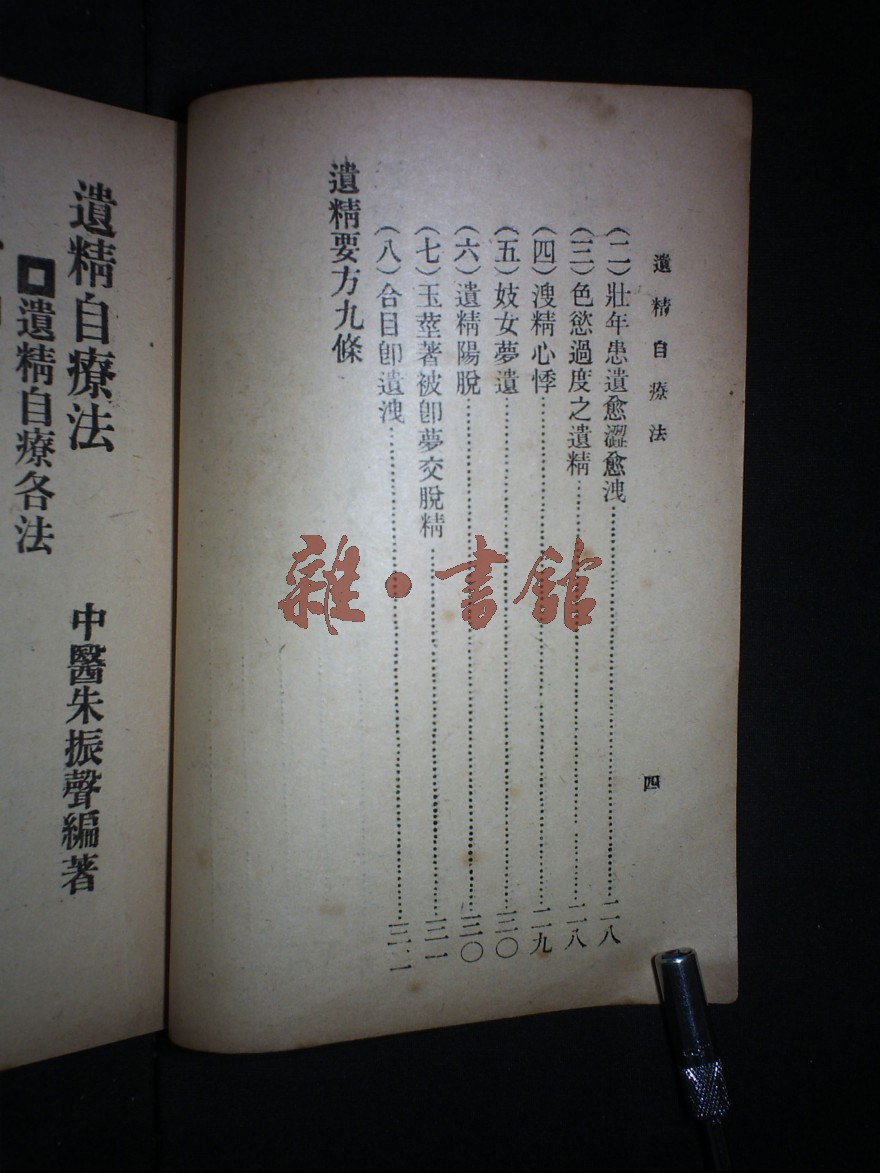 遺精自療法
四
(二)壯年患遺愈澀愈洩……二八
(三)色慾過度之遺精……二八
(四)溲精心悸……二九
(五)妓女夢遺……三〇
(六)遺精陽脫……三〇
(七)玉莖著被卽夢交脫精……三一
(八)合目卽遺洩……三二
遺精要方九條
遺精自療法
中醫朱振聲編著
遺精自療各法
雜·書館